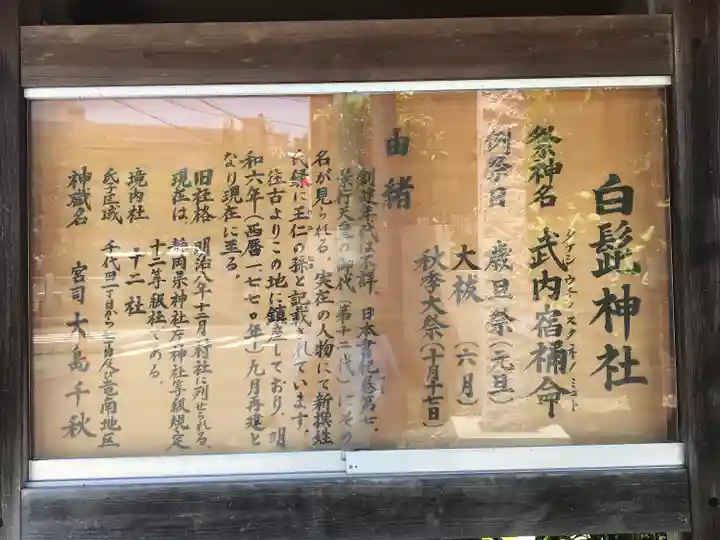 白髭神社
祭神名 武内宿禰命
例祭日 歳旦祭(元旦)
大祓(六月)
秋季大祭(十月十七日)
由緒
創建年代は不詳、日本書紀巻第七、
景行天皇の御代(第十二代)にその
名が見られる。実在の人物にて新撰姓
氏録に王仁の孫と記載されています。
往古よりこの地に鎮座しており、明
和六年(西暦一七七〇年)九月再建と
なり現在に至る。
旧社格 明治八年十二月村社に列せられる、
現在は、静岡県神社庁神社等級規定
十二等級社である。
境内社 十二社
氏子区域 千代田一丁目から 丁目及び竜南地区
神職名 宮司 大島千秋